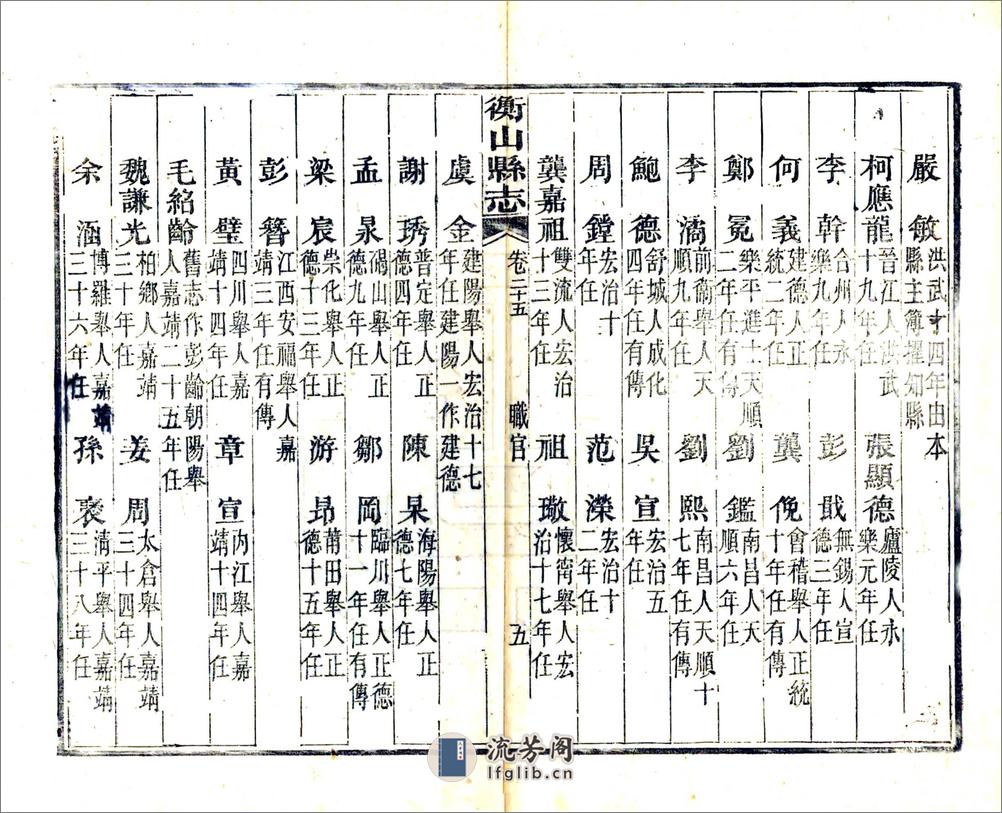 嚴敏 洪武十四年由本縣主簿擢知縣
柯應龍 晉江人洪武十九年任 張顯德 廬陵人永樂元年任
李幹 合州人永樂九年任 彭戢 無錫人宣德三年任
何義 建德人正統二年任 龔俛 會稽舉人正統十年任有傳
鄭冕 樂平進士天順二年任有傳 劉鑑 南昌人天順六年任
李潏 前衞舉人天順九年任 劉熙 南昌人天順十七年任有傳
鮑德 舒城人成化四年任有傳 吳宣 宏治五年任
周鏜 宏治十年任 范濚 宏治十二年任
龔嘉祖 雙流人宏治十三年任 祖璥 懷衛舉人宏治十七年任
衡山縣志 卷二十五 職官 五
虞金 建陽舉人宏治十七年任建陽一作建德
謝琇 普定舉人正德四年任 陳杲 海陽舉人正德七年任
孟泉 碭山舉人正德九年任 鄒岡 臨川舉人正德十一年任有傳
梁宸 崇化舉人正德十三年任 游昂 莆田舉人正德十五年任
彭簪 江西安福舉人嘉靖三年任有傳
黃璧 四川舉人嘉靖十四年任 章宣 內江舉人嘉靖十四年任
毛紹齡 舊志作彭齡朝陽舉人嘉靖二十五年任
魏謙光 柏鄉人嘉靖三十年任 姜周 太倉舉人嘉靖三十四年任
余涵 博羅舉人嘉靖三十六年任 孫裒 清平舉人嘉靖三十八年任
流芳阁
lfglib.cn